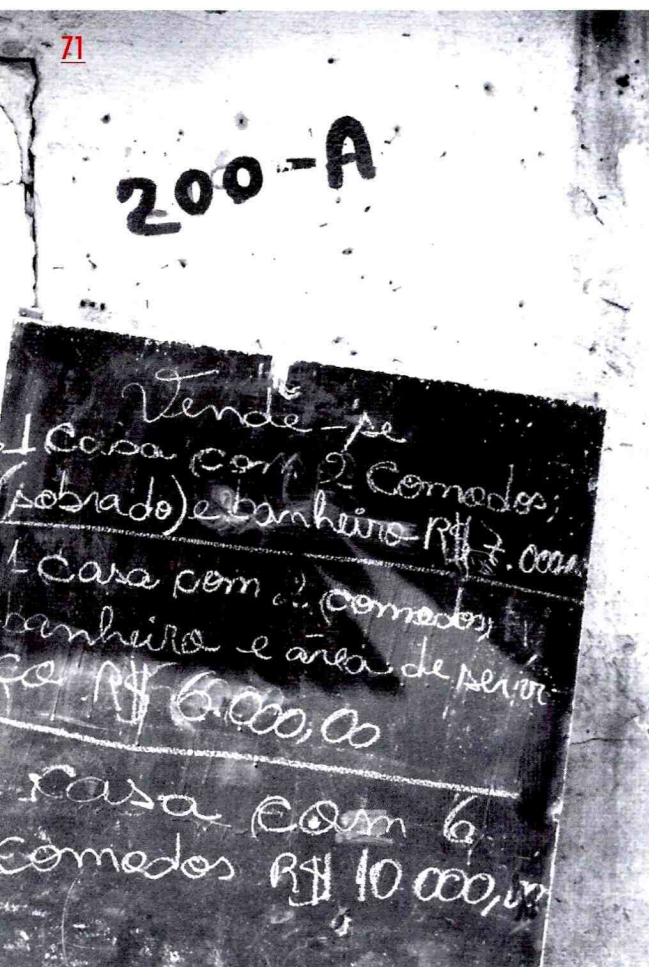 71
200-A
Vende-se
1 Casa com 2 Comodos,
(sobrado) e banheiro R$ 7.000
1 casa com 2 comodos,
banheiro e área de servi-
ço R$ 6.000,00
casa com 6
comodos R$ 10 000,00